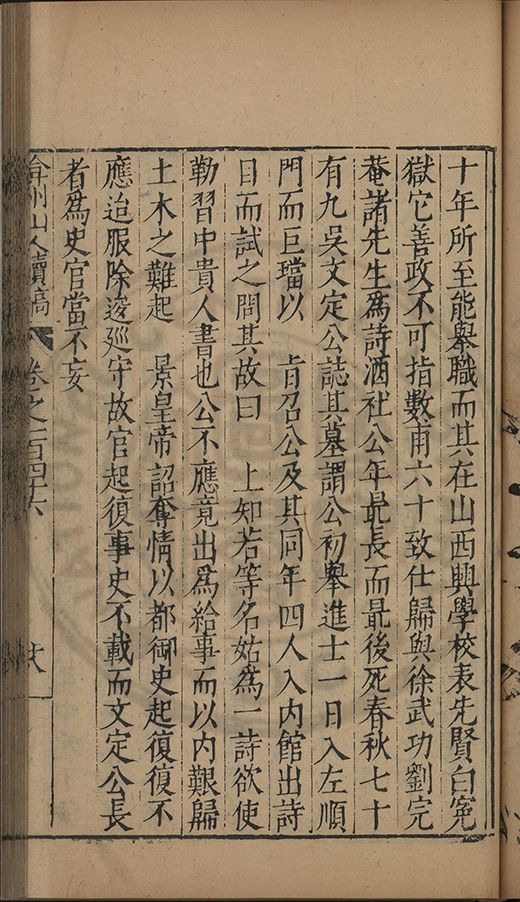 十年所至能舉職而其在山西興學校表先賢白寃
獄它善政不可指數甫六十致仕歸與徐武功劉完
菴諸先生爲詩酒社公年最長而最後死春秋七十
有九吳文定公誌其墓謂公初舉進士一日入左順
門而巨璫以　旨召公及其同年四人入内館出詩
目而試之問其故曰　上知若等名姑爲一詩欲使
勒習中貴人書也公不應竟出爲給事而以内艱歸
土木之難起　景皇帝詔奪情以都御史起復復不
應迨服除逡廵守故官起復事史不載而文定公長
者爲史官當不妄
弇州山人續稿　卷之一百四十六　十八